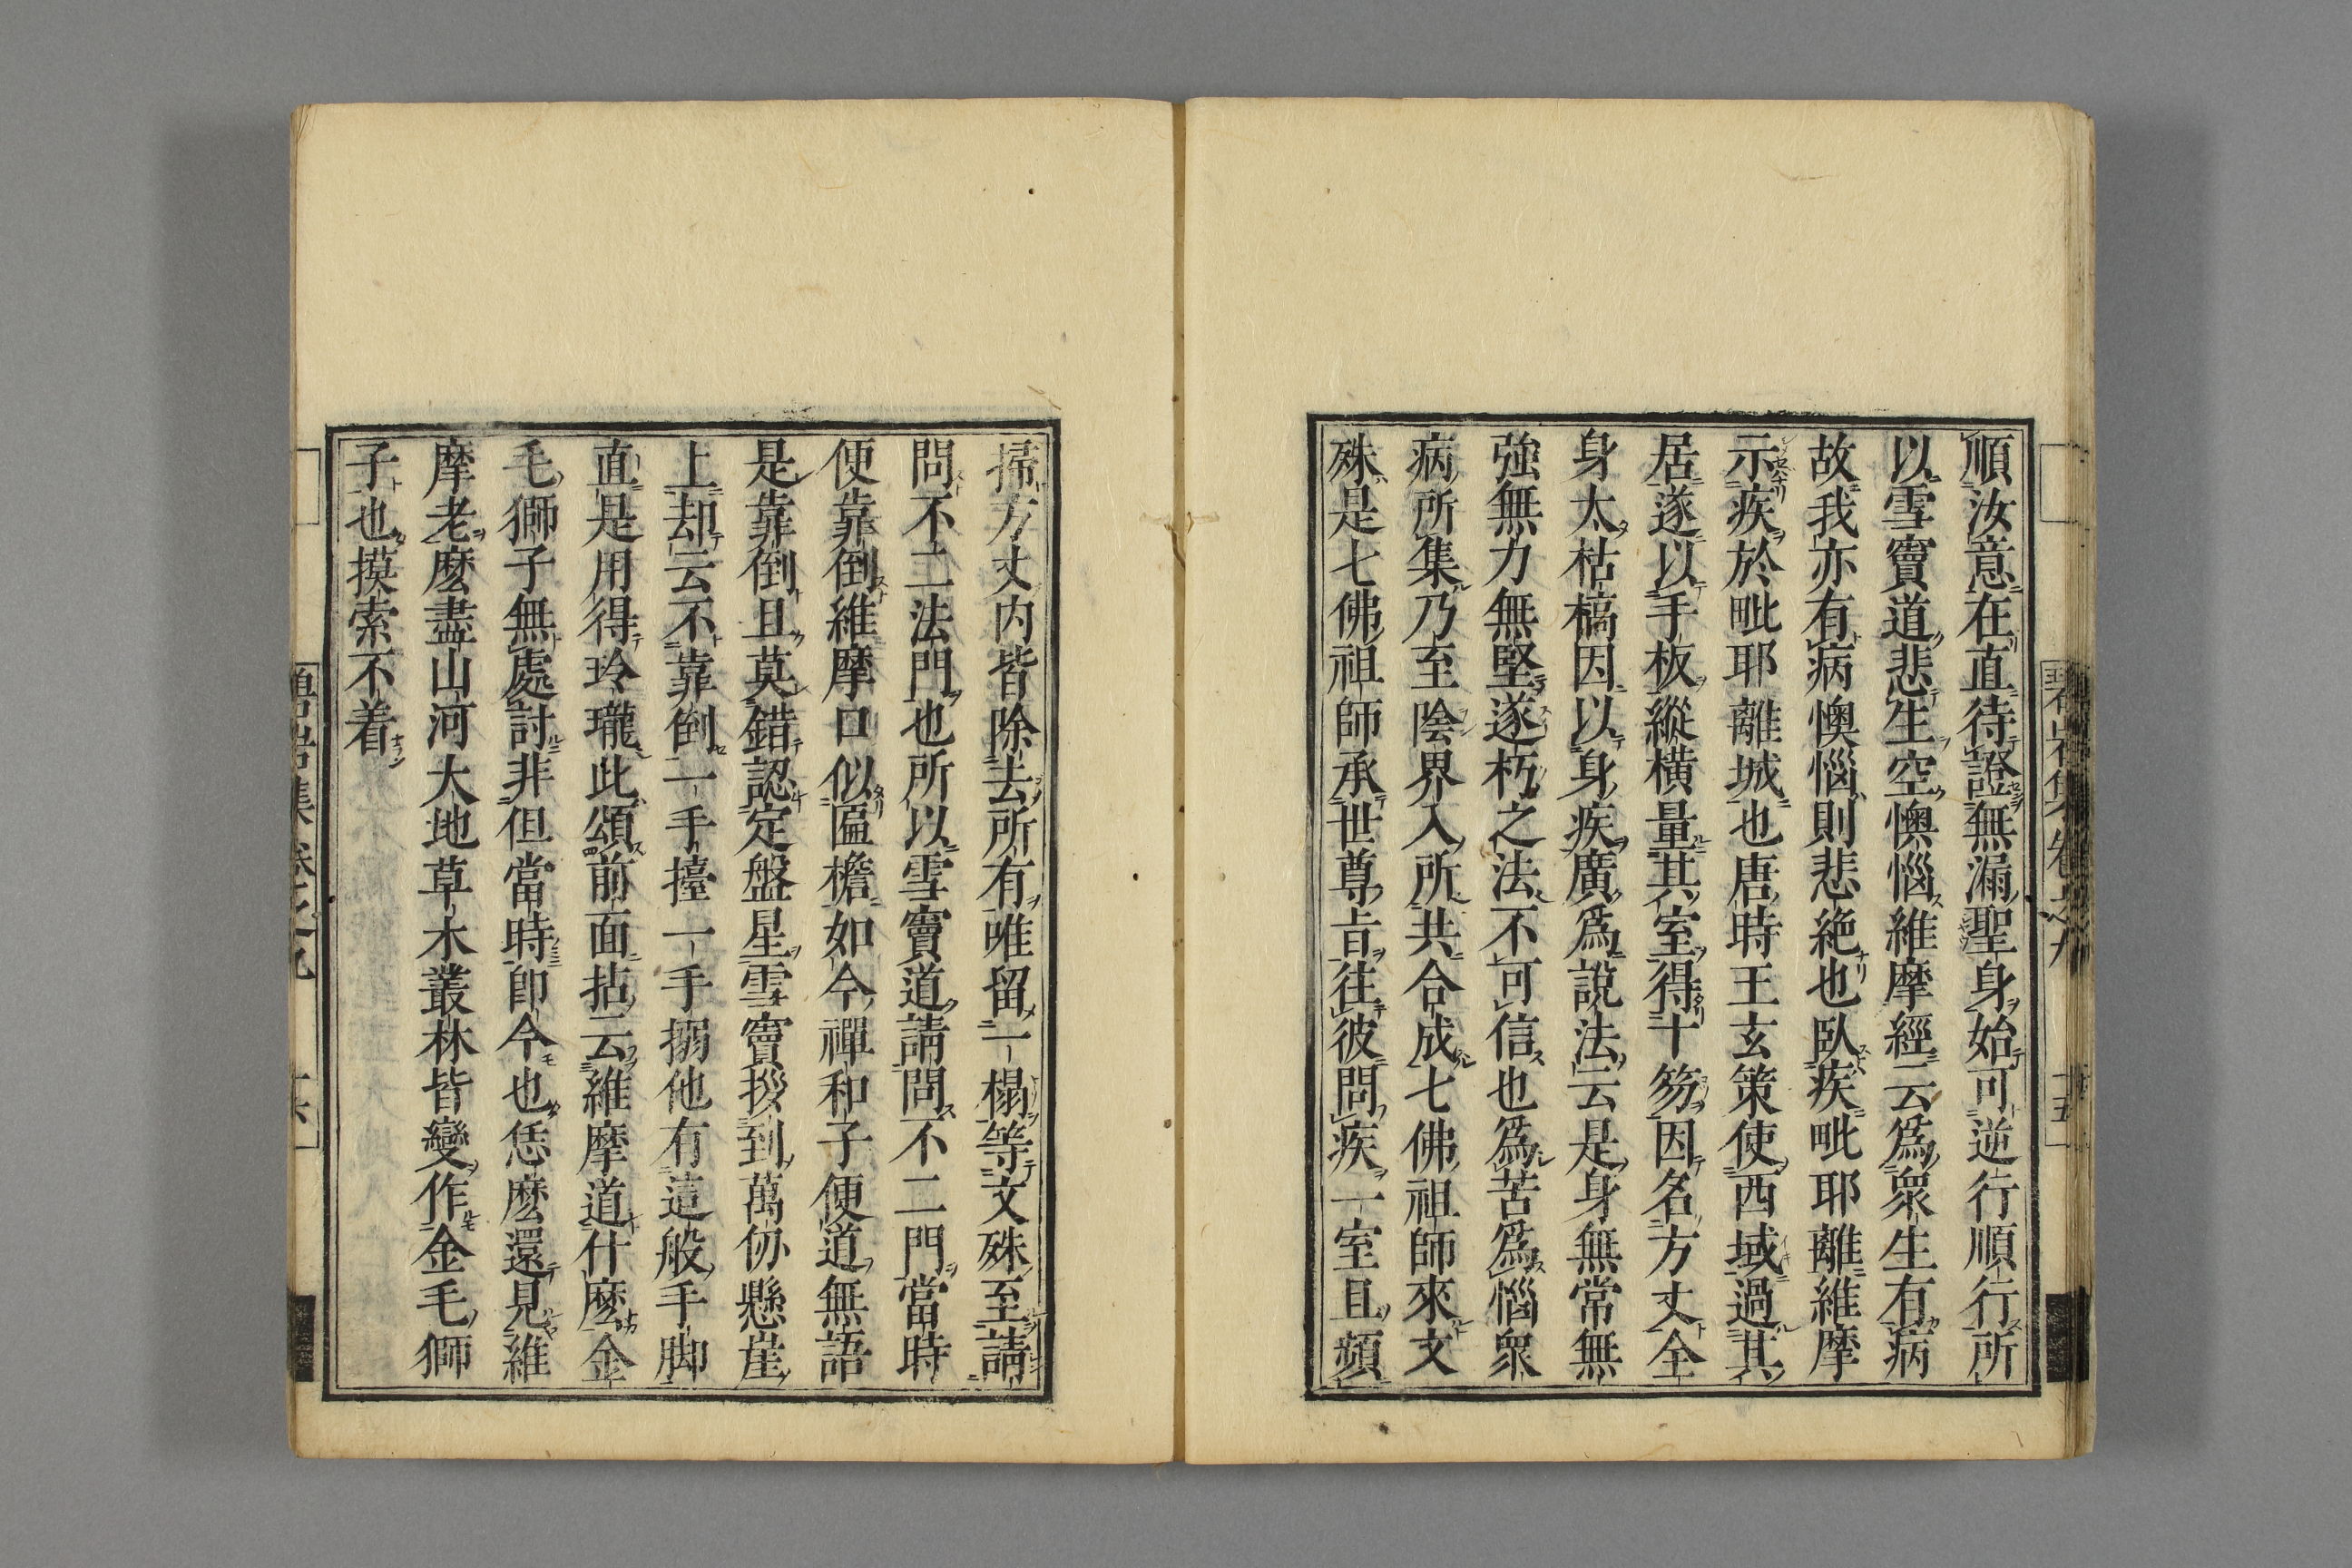 順汝意在直待證無漏聖身始可逆行順行所
以雪竇道悲生空懊惱維摩經云爲衆生有病
故我亦有病懊惱則悲絶也臥疾毗耶離維摩
示疾於毗耶離城也唐時王玄策使西域過其
居遂以手板縱横量其室得十笏因名方丈全
身太枯槁因以身疾廣爲説法云是身無常無
強無力無堅遂朽之法不可信也爲苦爲惱衆
病所集乃至陰界入所共合成七佛祖師來文
殊是七佛祖師承世尊旨往彼問疾一室且頻
掃方丈内皆除去所有唯留一榻等文殊至請
問不二法門也所以雪竇道請問不二門當時
便靠倒維摩口似匾檐如今禪和子便道無語
是靠倒且莫錯認定盤星雪竇拶到萬仞懸崖
上却云不靠倒一手擡一手搦他有這般手脚
直是用得玲瓏此頌前面拈云維摩道什麽金
毛獅子無處討非但當時即今也恁麽還見維
摩老麽盡山河大地草木叢林皆變作金毛獅
子也摸索不着